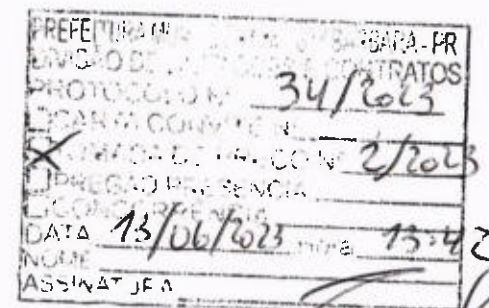 PREFEITURA BARBARA-PR
DIVISÃO DE CONTRATOS
PROTOCOLO Nº 34/2023
CARTA CONVITE Nº
X TOMADA DE PREÇO Nº 2/2023
PREGÃO PRESENCIAL
CONCORRENCIA
DATA 13/06/2023 Hora 13:42
NOME
ASSINATURA